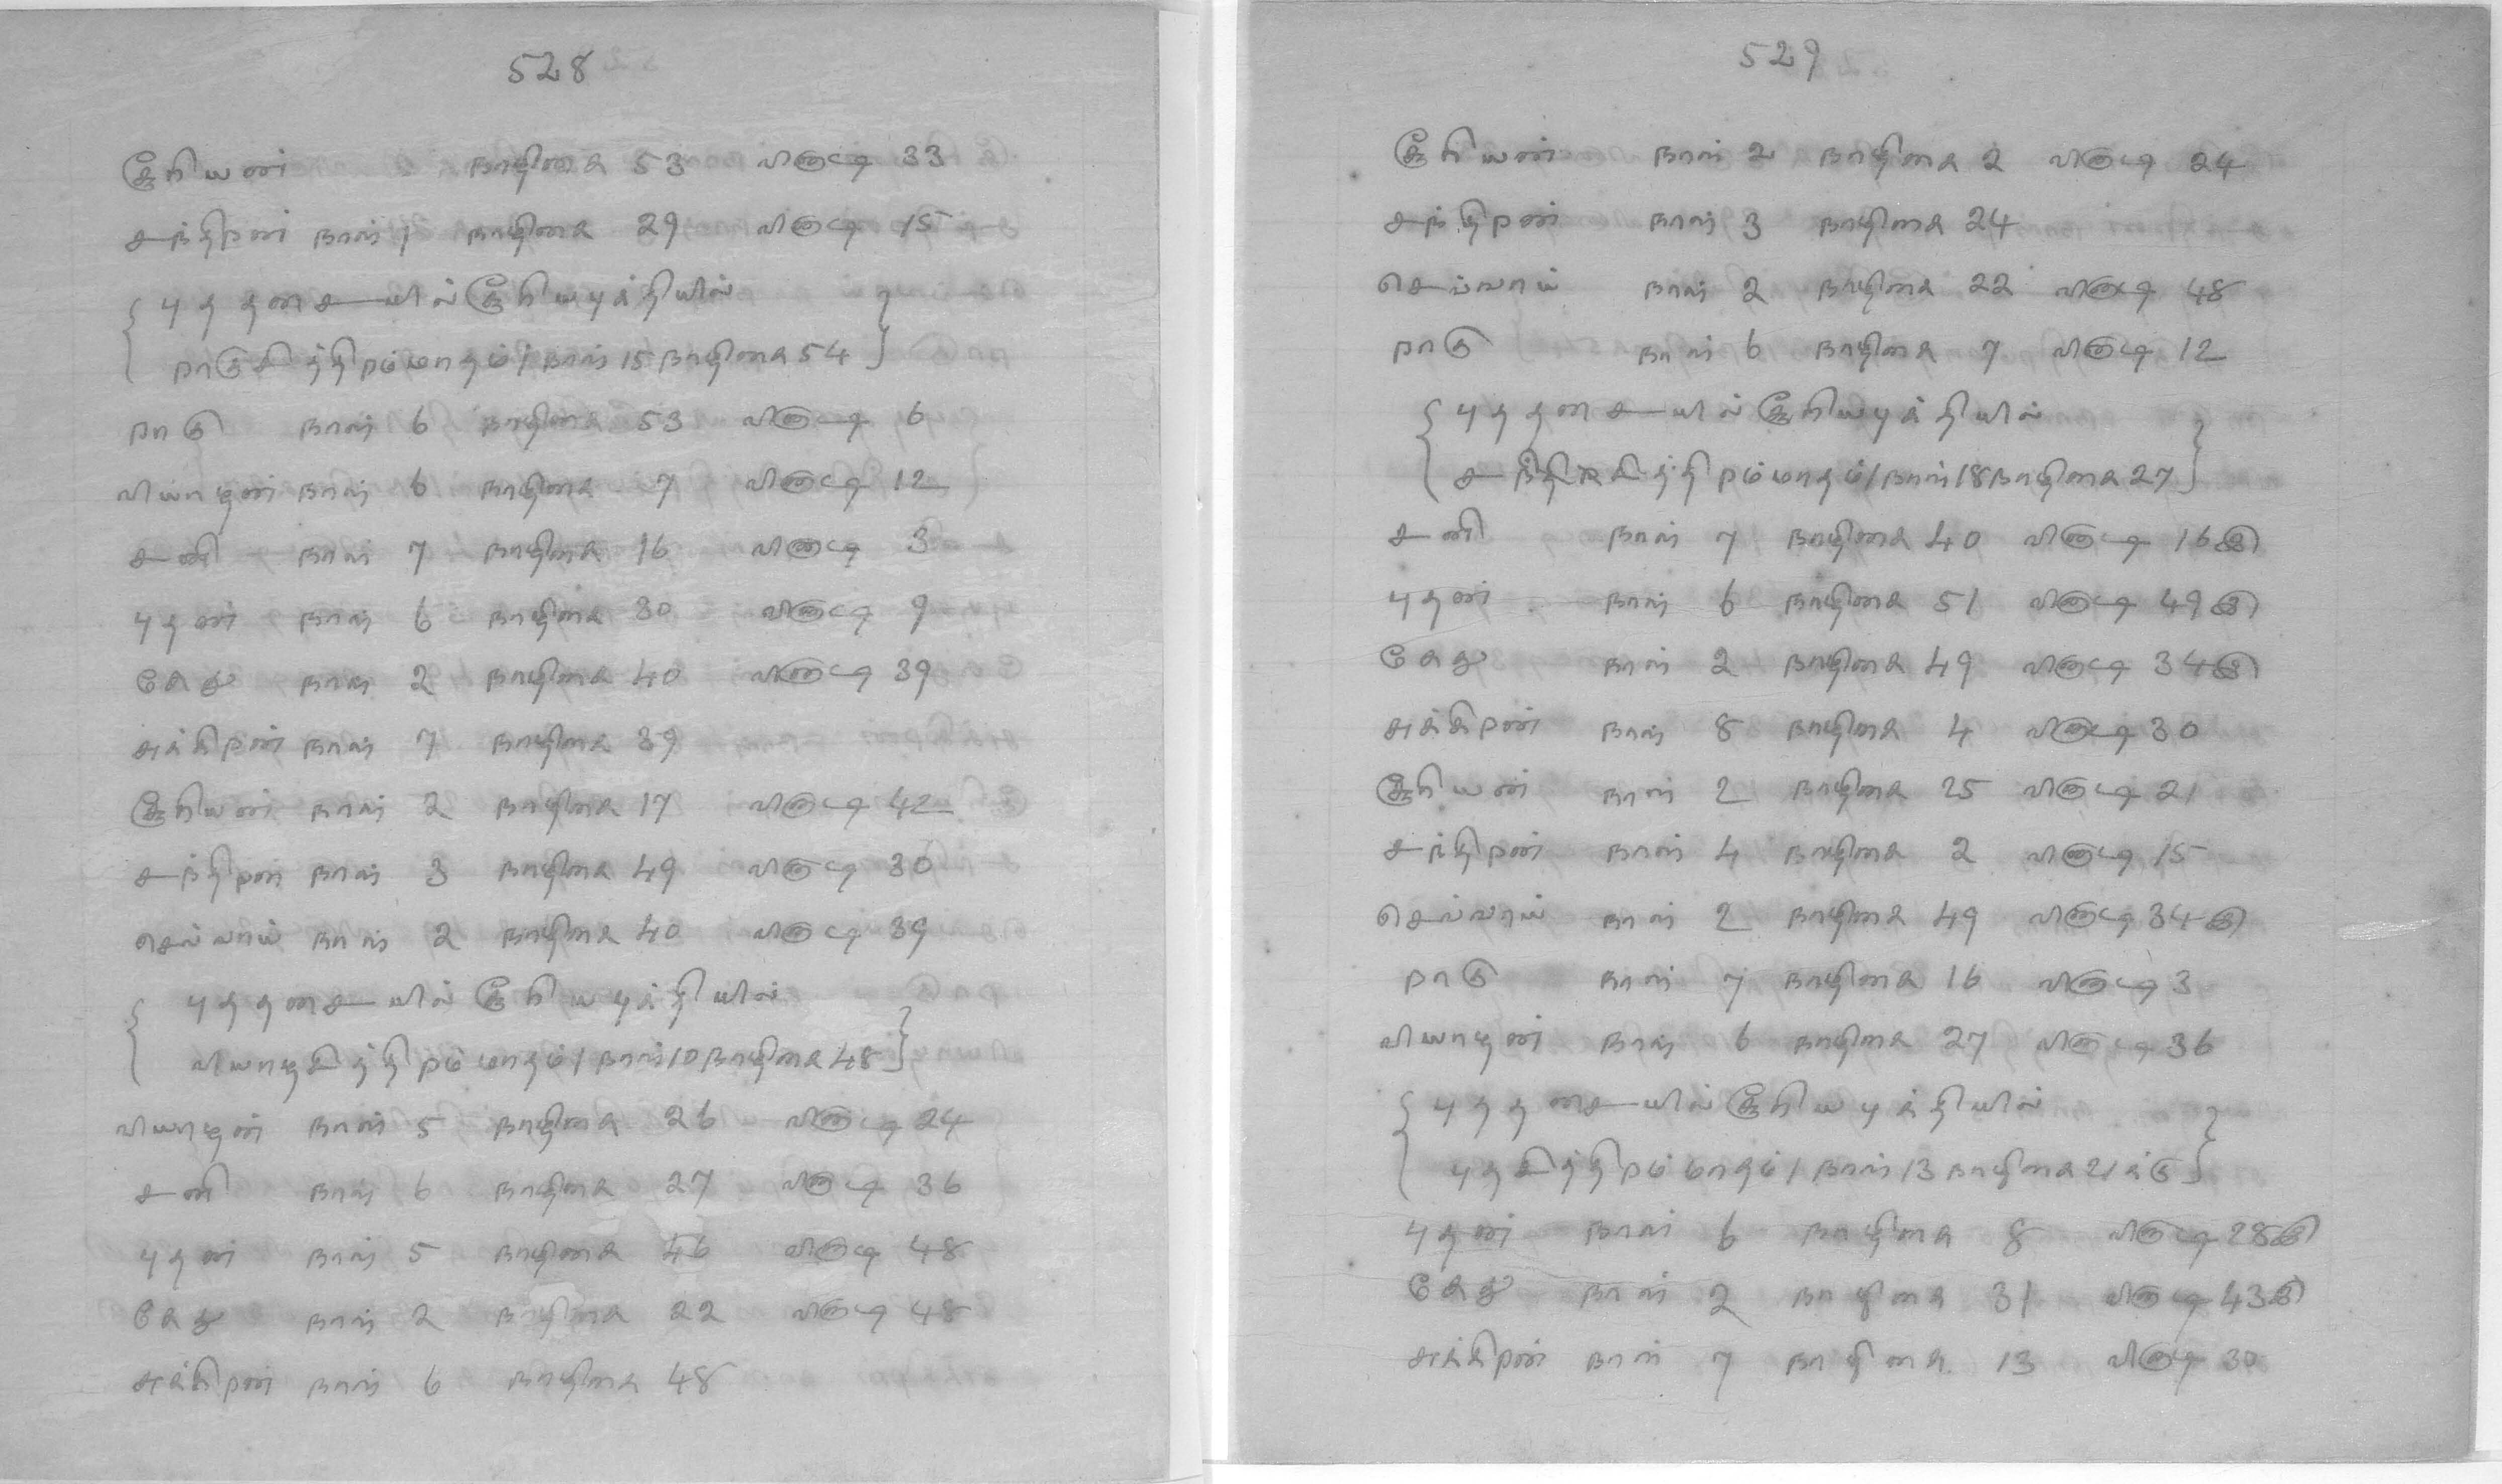 528
சூரியன் நாழிகை 53 விநாடி 33
சந்திரன் நாள் 1 நாழிகை 29 விநாடி 15
{ புத தசையில் சூரிய புக்தியில்
ராகு சித்திரம் மாதம் 1 நாள் 15 நாழிகை 54 }
ராகு நாள் 6 நாழிகை 53 விநாடி 6
வியாழன் நாள் 6 நாழிகை 7 விநாடி 12
சனி நாள் 7 நாழிகை 16 விநாடி 3
புதன் நாள் 6 நாழிகை 30 விநாடி 9
கேது நாள் 2 நாழிகை 40 விநாடி 39
சுக்கிரன் நாள் 7 நாழிகை 39
சூரியன் நாள் 2 நாழிகை 17 விநாடி 42
சந்திரன் நாள் 3 நாழிகை 49 விநாடி 30
செவ்வாய் நாள் 2 நாழிகை 40 விநாடி 39
{ புத தசையில் சூரிய புக்தியில்
வியாழ சித்திரம் மாதம் 1 நாள் 10 நாழிகை 48 }
வியாழன் நாள் 5 நாழிகை 26 விநாடி 24
சனி நாள் 6 நாழிகை 27 விநாடி 36
புதன் நாள் 5 நாழிகை 46 விநாடி 48
கேது நாள் 2 நாழிகை 22 விநாடி 48
சுக்கிரன் நாள் 6 நாழிகை 48
529
சூரியன் நாள் 2 நாழிகை 2 விநாடி 24
சந்திரன் நாள் 3 நாழிகை 24
செவ்வாய் நாள் 2 நாழிகை 22 விநாடி 48
ராகு நாள் 6 நாழிகை 7 விநாடி 12
{ புத தசையில் சூரிய புக்தியில்
சனி சித்திரம் மாதம் 1 நாள் 18 நாழிகை 27 }
சனி நாள் 7 நாழிகை 40 விநாடி 16இ
புதன் நாள் 6 நாழிகை 51 விநாடி 49இ
கேது நாள் 2 நாழிகை 49 விநாடி 34இ
சுக்கிரன் நாள் 8 நாழிகை 4 விநாடி 30
சூரியன் நாள் 2 நாழிகை 25 விநாடி 21
சந்திரன் நாள் 4 நாழிகை 2 விநாடி 15
செவ்வாய் நாள் 2 நாழிகை 49 விநாடி 34இ
ராகு நாள் 7 நாழிகை 16 விநாடி 3
வியாழன் நாள் 6 நாழிகை 27 விநாடி 36
{ புத தசையில் சூரிய புக்தியில்
புத சித்திரம் மாதம் 1 நாள் 13 நாழிகை 21க்கு }
புதன் நாள் 6 நாழிகை 8 விநாடி 28இ
கேது நாள் 2 நாழிகை 31 விநாடி 43இ
சுக்கிரன் நாள் 7 நாழிகை 13 விநாடி 30